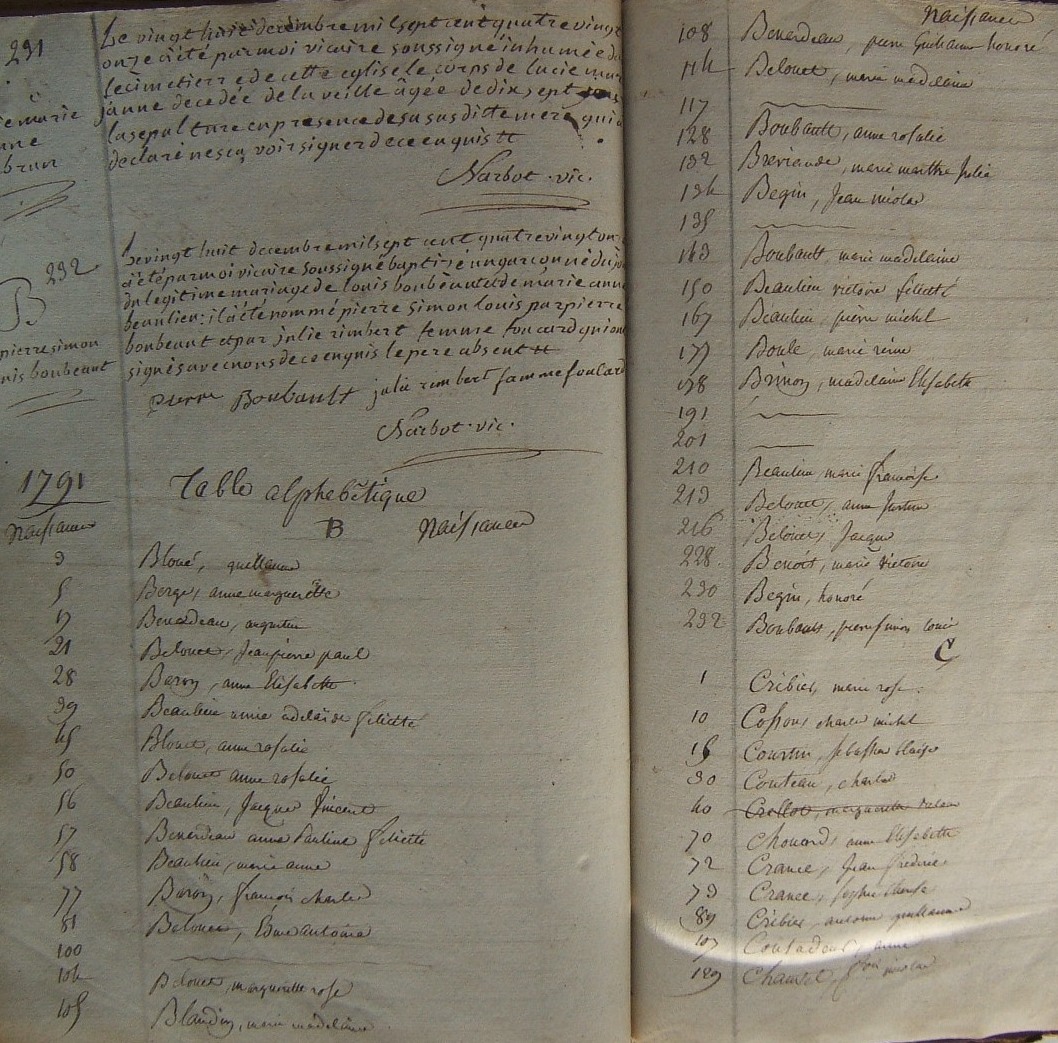 231
Le vingt huit decembre mil sept cent quatre vingt
onze a été par moi vicaire soussigné inhumée d
le cimetierre de cette eglise le corps de lucie
janne decedée de la veille âgée de dix sept
la sepulture en presence de sa susditte mere qui a
declaré ne sçavoir signer de ce enquis
Narbot . vic.
marie
brun
232
B
pierre simon
bonbeaut
Le vingt huit decembre mil sept cent quatre vingt on
a été par moi vicaire soussigné baptisé un garçon né du
du legitime mariage de louis bonbeaut et de marie anne
beaulieu : il a été nommé pierre simon louis par pierre
bonbeaut et par julie rimbert femme foucard qui ont
signés avec nous de ce enquis le pere absent
pierre Boubault julie rimbert famme foucard
Narbot . vic.
1791
Table alphebétique
Naissance
B Naissances
3 Bloué, guillaume
5 Berge, anne margueritte
17 Benardeau, augustin
21 Belouet, Jean pierre paul
28 Baron, anne Elisabette
39 Beaulieu adelaïde félicité
45 Blouet, anne rosalie
50 Belouet anne rosalie
56 Beaulieu, Jacque Vincent
57 Benardeau anne Pauline félicité
58 Beaulieu, marie anne
77 Baron, francois charles
81 Belouet, Edme antoine
100
104 Belouet, margueritte rose
105 Blandin, marie madelaine
Naissances
108 Benardeau, pierre Guillaume honoré
114 Belouet, marie madelaine
117
128 Boubault, anne rosalie
132 marie marthe Julie
134 Begin, Jean nicolas
135
143 Boubault, marie madelaine
150 Beaulieu victoire félicité
167 Beaulieu, pierre michel
177 Boule, marie reine
178 Brinon, madelaine Elisabette
191
201
210 Beaulieu marie françoise
213 Belouet, anne Justine
216 Belouet, Jacque
228 Benoît, marie Victoire
230 Begin, honoré
232 Boubault, pierre simon louis
C
1 Crébier, marie rose
10 charles michel
15 Courtin, sebastien blaise
30 Couteau, charles
40 Crellot, marguerite
70 Chouard, anne Elisabette
72 Crance, Jean
73 Crance,
89 Crébier, antoine guillaume
107 anne
189 nicolas